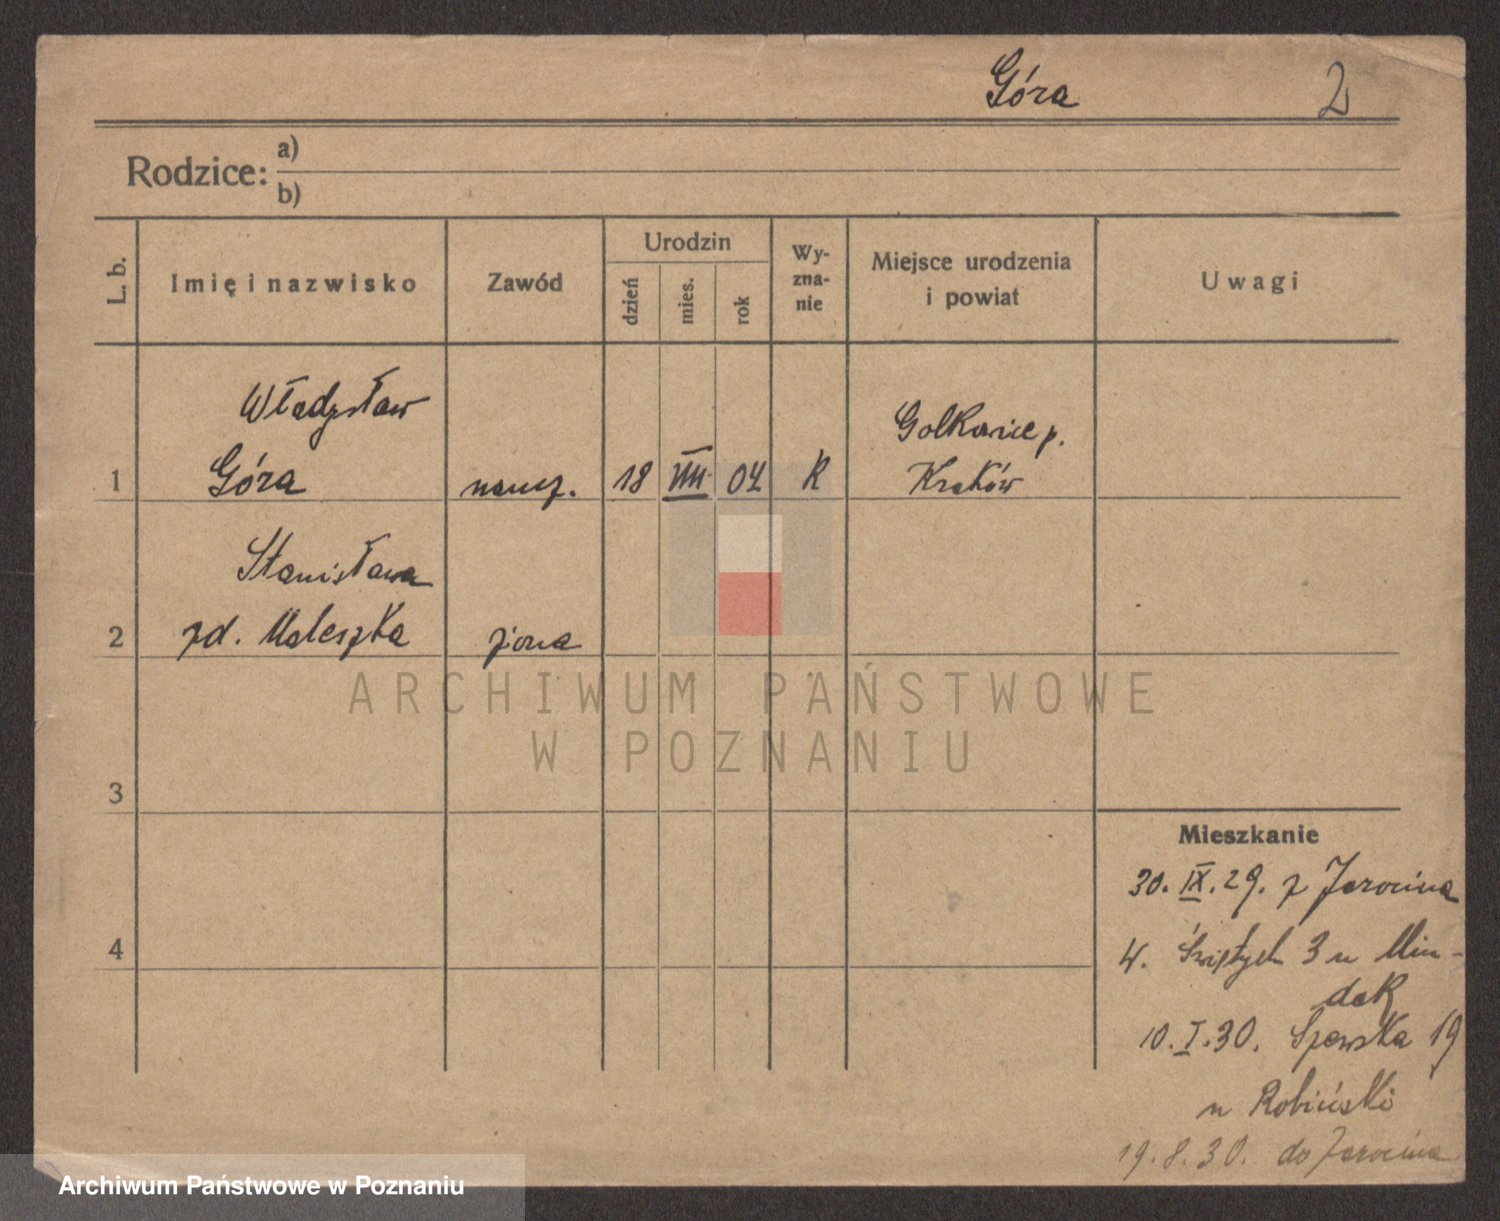 Góra 2
Rodzice: a)
b)
L. b.
Imię i nazwisko
Zawód
Urodzin
dzień
mies.
rok
Wy-
zna-
nie
Miejsce urodzenia
i powiat
Uwagi
Władysław
1 Góra naucz. 18 VIII 04 R
Golkowice p.
Kraków
Stanisława
2 zd. Maleszka żona
3
4
ARCHIWUM PAŃSTWOWE
W POZNANIU
Mieszkanie
30. IX. 29. z Jarocina
W. Świętych 3 u Min-
dak
10. I. 30. Szewska 19
u Robiński
19. 8. 30. do Jarocina
Archiwum Państwowe w Poznaniu